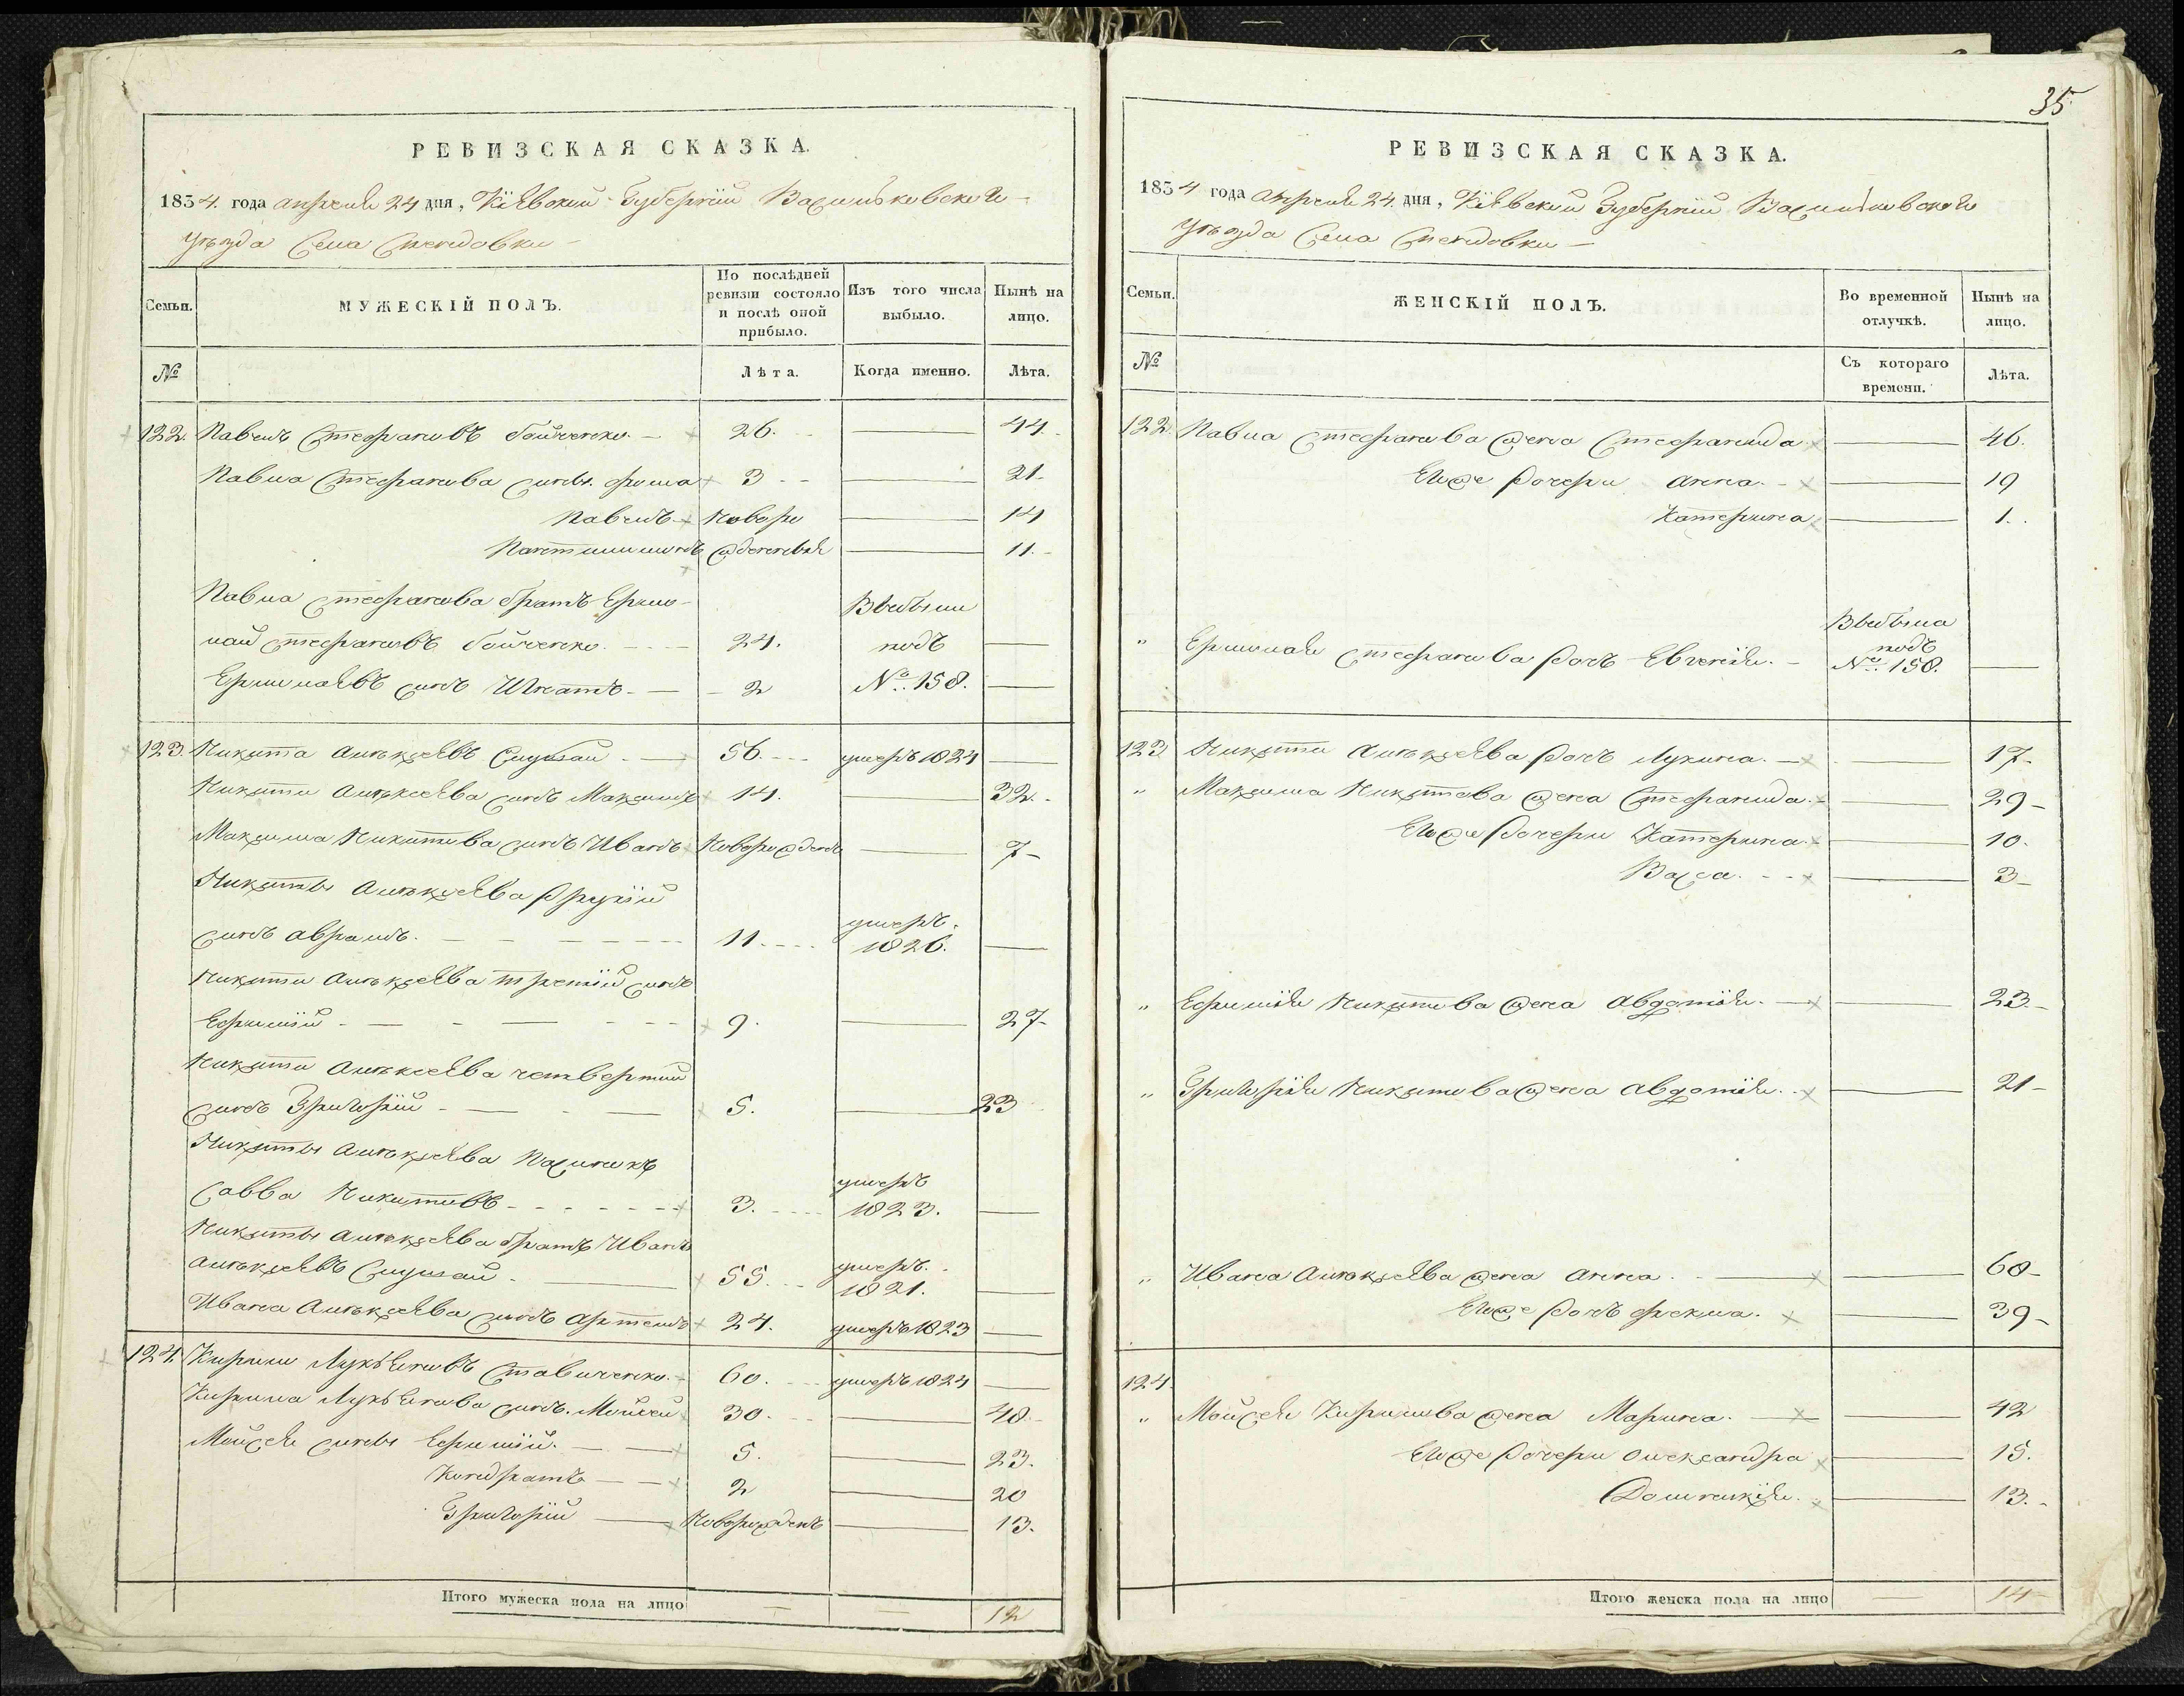 РЕВИЗСКАЯ СКАЗКА.
1834. года апреля 24 дня, Кіевской Губерніи Васильковскаго
уѣзда Села
Семьи.
МУЖЕСКІЙ ПОЛЪ.
По послѣдней ревизіи состояло и послѣ оной прибыло.
Изъ того числа выбыло.
Нынѣ на лицо.
№
Лѣта.
Когда именно.
Лѣта.
122. Павелъ Стефановъ Бойченко. 26. 44.
Павла Стефанова сыновья. Фома 3 21.
Павелъ Новоро 14
жденныя 11.
Павла Стефанова братъ Ермо- Въ былы
лай Стефановъ Бойченко. 24. подъ
Ермолаевъ сынъ Игнатъ. 2 № 158.
123. Никита Алексеевъ 56. умеръ 1824
Никиты Алексеева сынъ Максимъ 14. 32.
Максима Никитова сынъ Иванъ Новорожденъ 7
Никиты Алексеева другій
сынъ Аврамъ. 11. умеръ. 1826.
Никиты Алексеева третій сынъ
Ефимій 9. 27
Никиты Алексеева четвертый
сынъ Григорій 5. 23
Никиты Алексеева Пасынокъ
Савва Никитовъ 3. умеръ 1823.
Никиты Алексеева братъ Иванъ
Алексеевъ 55. умеръ. 1821.
Ивана Алексеева сынъ Артемъ 24. умеръ 1823
124. Кирилъ Лукьяновъ Ставиченко. 60. умеръ 1824
Кирила Лукьянова сынъ. Мойсей 30. 48.
Мойсея сыновья Ефимій. 5. 23.
Кондратъ 2 20
Григорій Новорожденъ 13.
Итого мужеска пола на лицо 12
35
РЕВИЗСКАЯ СКАЗКА.
1834 года апреля 24. дня, Кіевской Губерніи Васильковскаго
уѣзда Села
Семьи.
ЖЕНСКІЙ ПОЛЪ.
Во временной отлучкѣ.
Нынѣ на лицо.
№
Съ котораго времени.
Лѣта.
122. Павла Стефанова жена Стефанида 46.
Егоже дочери Анна. 19
Катерина 1.
" Ермолая Стефанова дочь Евгенія. Въ была подъ № 158.
123 Никиты Алексеева дочь Лукина. 17
" Максима Никитова жена Стефанида. 29
Егоже дочери Катерина 10.
Васса. 3
" Ефимія Никитова жена Авдотія. 23.
" Григорія Никитова жена Авдотія. 21
" Ивана Алексеева жена Анна. 60
Егоже дочь Фекла. 39
124.
" Мойсея Кирилова жена Марина. 42
Егоже дочери Олександра 15.
Домникія. 13.
Итого женска пола на лицо 14